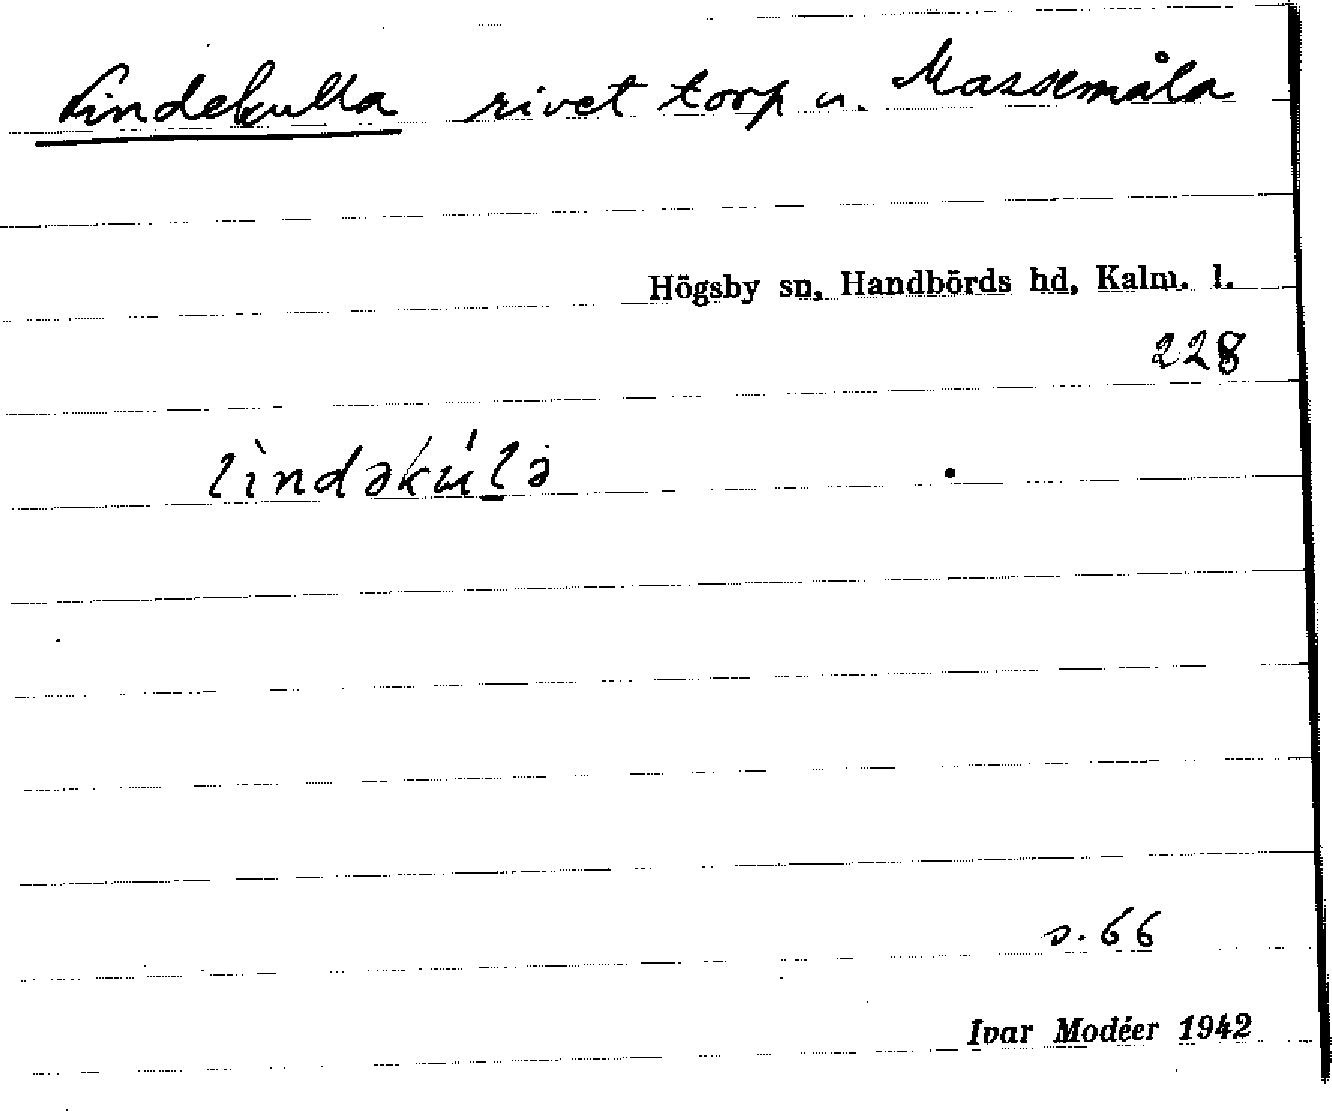 Lindekulla rivet torp u. Massemåla
Högsby sn, Handbörds hd, Kalm. l.
228
lìndəkúlə
s. 66
Ivar Modéer 1942